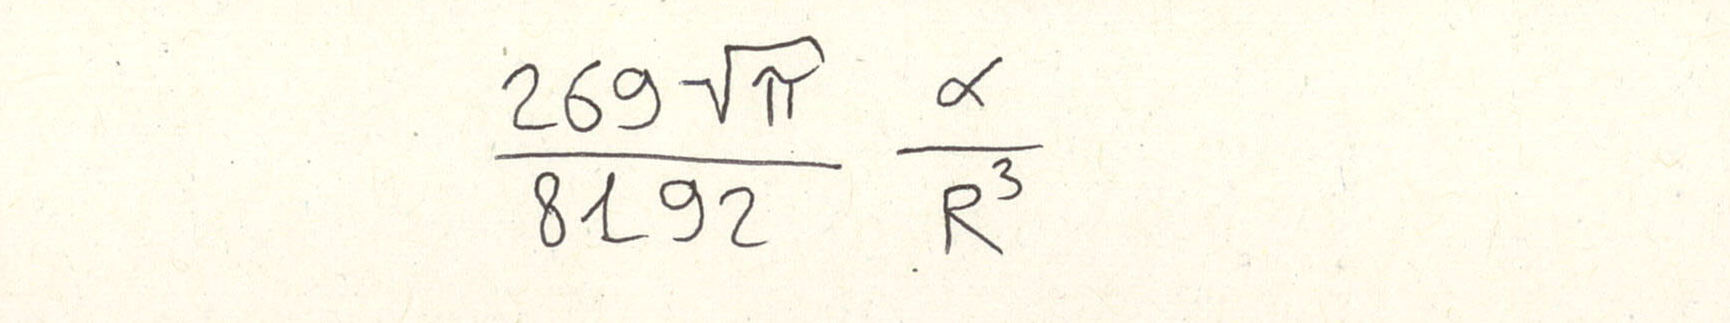 \frac{269\sqrt{\pi}}{8192} \frac{\alpha}{R^3}